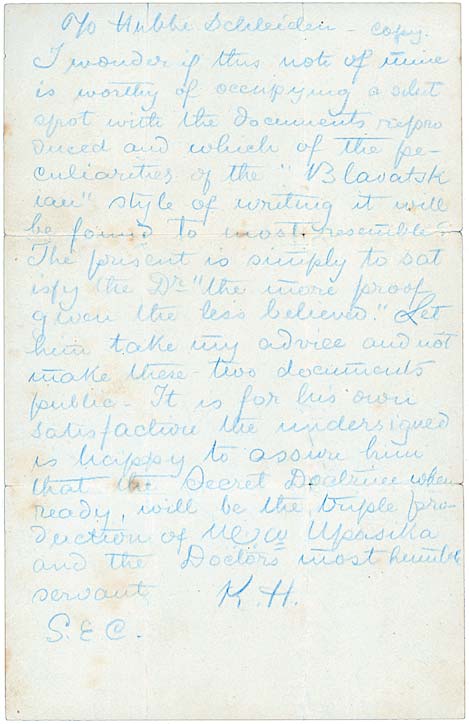 To Hubbe Schleiden - copy.
I wonder if this note of mine
is worthy of occupying a select
spot with the documents repro
duced and which of the pe-
culiarities of the "Blavatsk
ian" style of writing it will
be found to most resemble?
The present is simply to sat
isfy the Dr. "the more proof
given the less believed." Let
him take my advice and not
make these two documents
public - It is for his own
satisfaction the undersigned
is happy to assure him
that the Secret Doctrine when
ready, will be the triple pro-
duction of Upasika
and the Doctors most humble
servant K.H.
S.E.C.